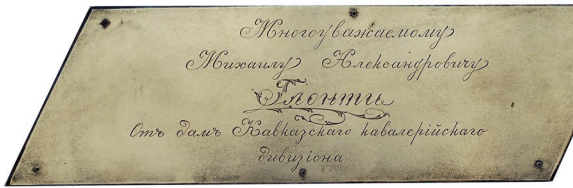 Многоуважаемому
Михаилу Александровичу
Глонти
Отъ дамъ Кавказскаго кавалерійскаго
дивизіона